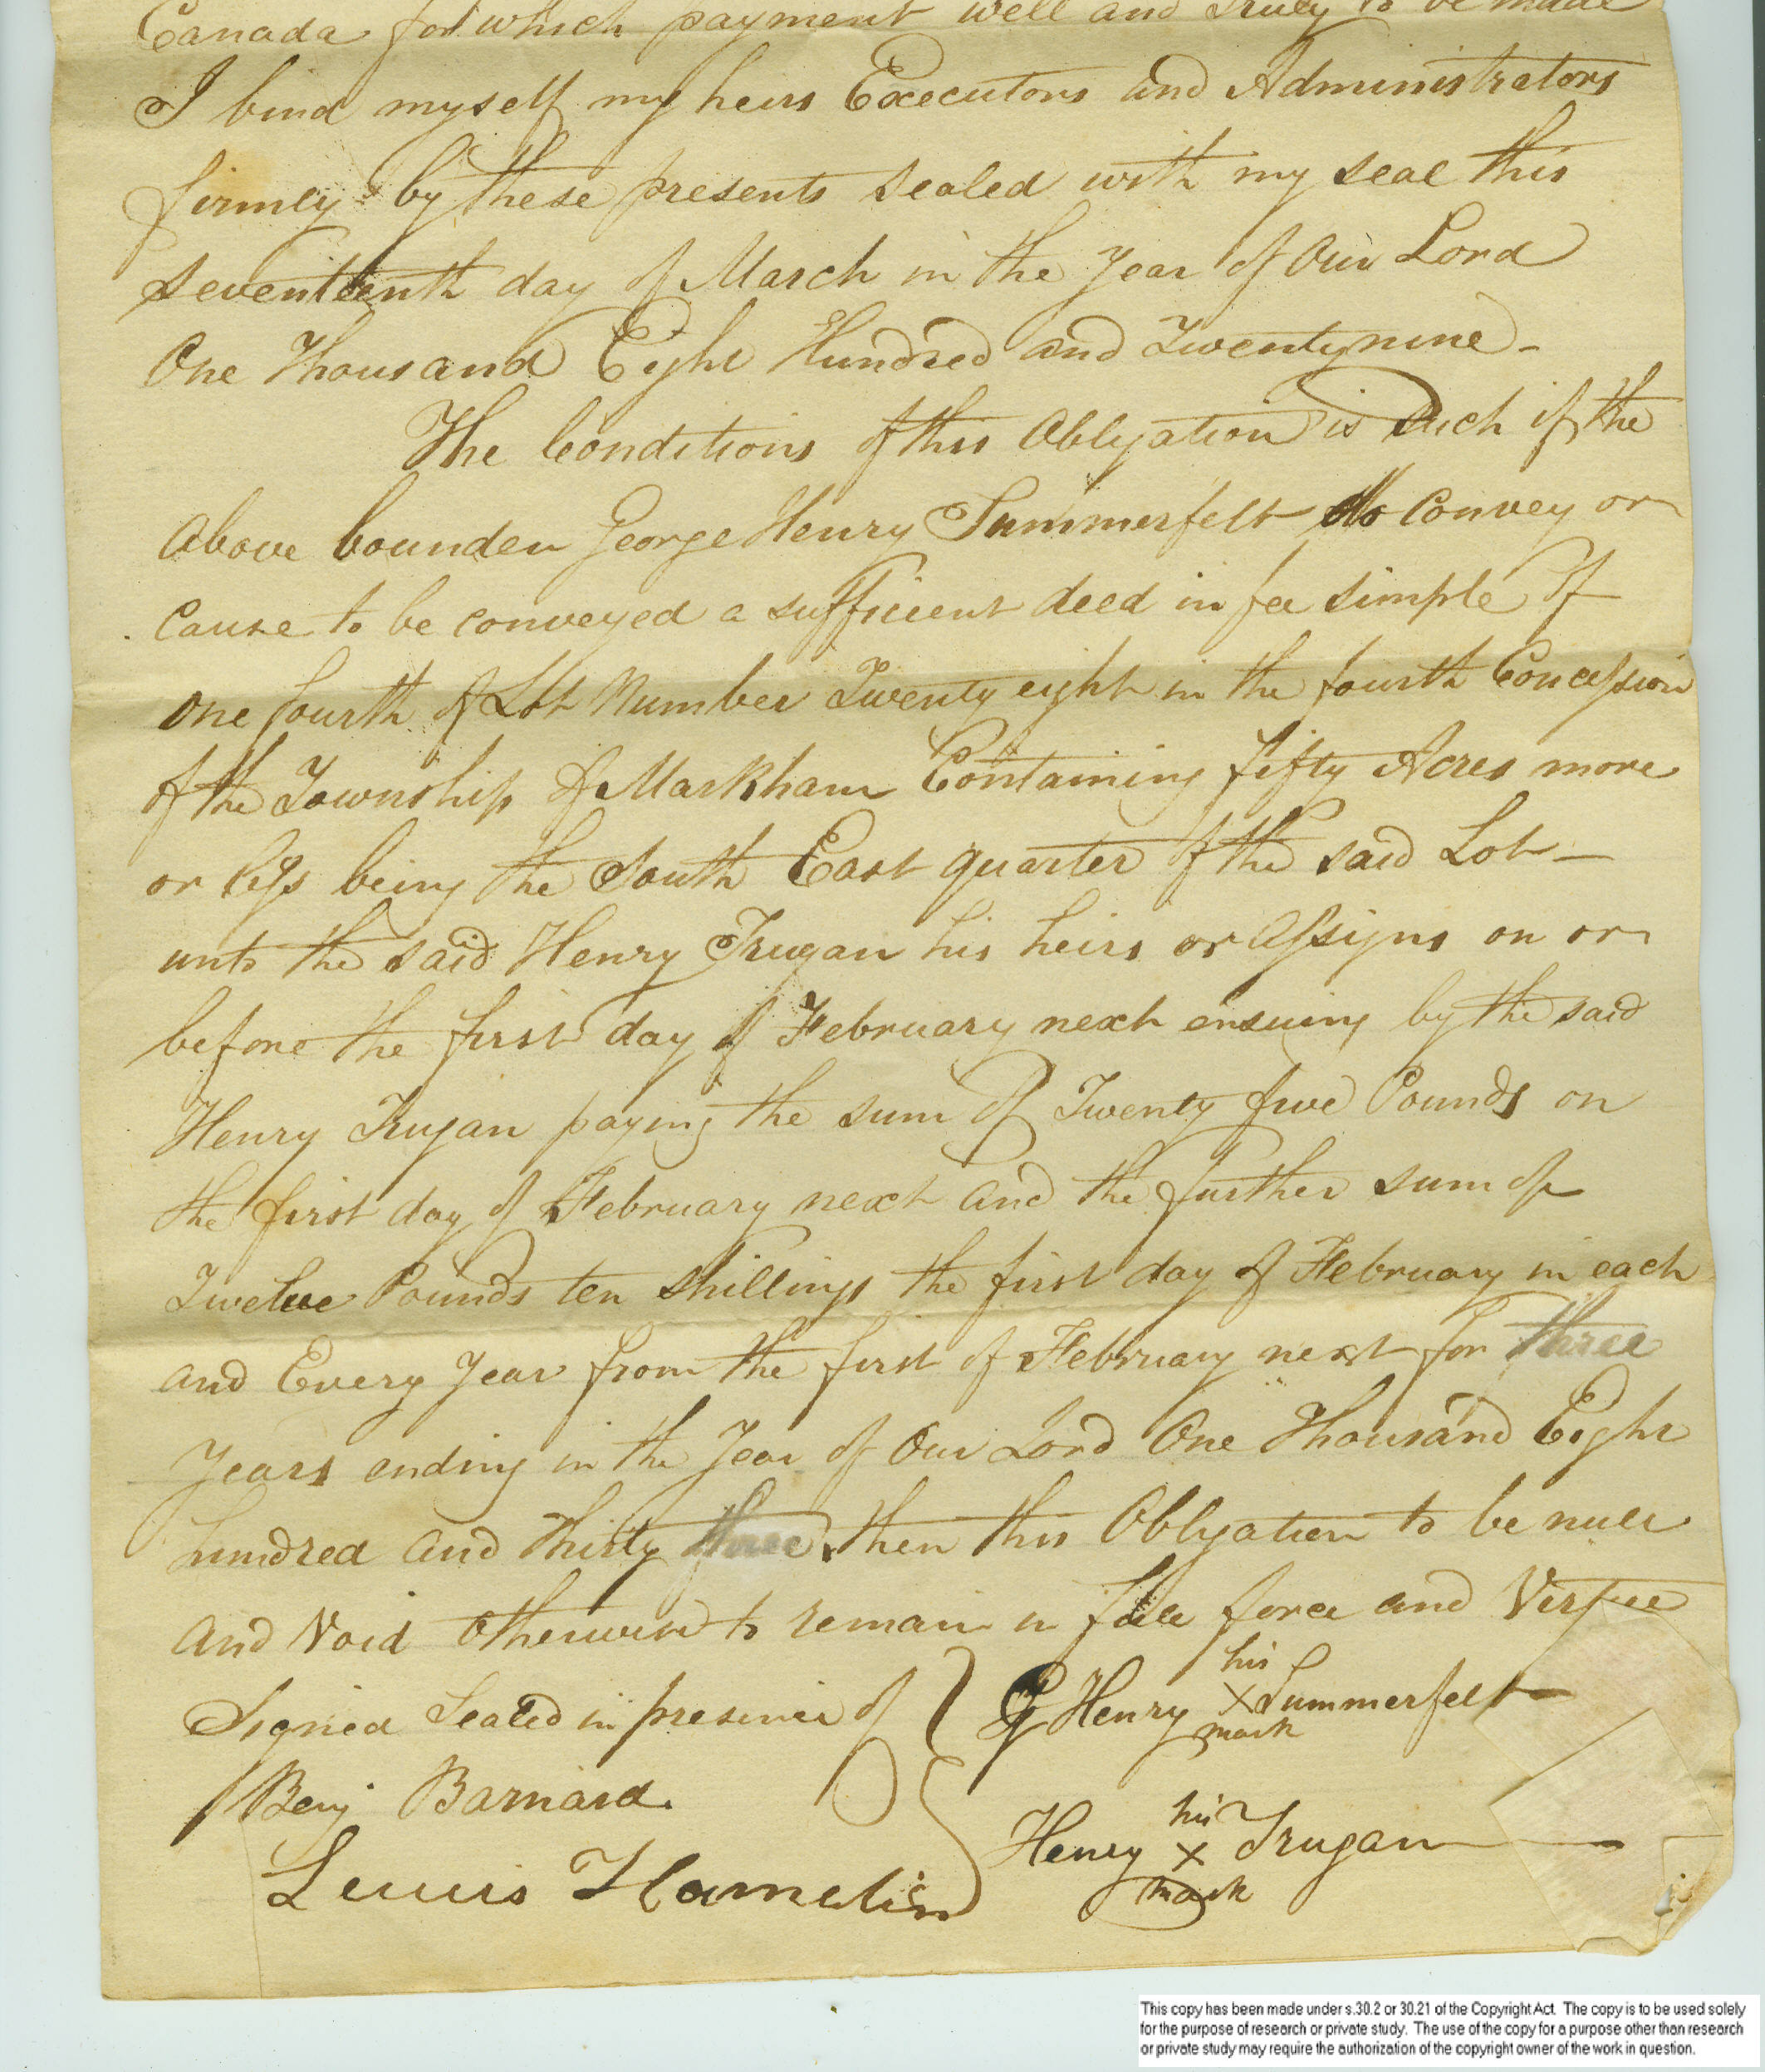 Canada for which payment well and Truly to be made
I bind myself my heirs Executors and Administrators
firmly by these presents sealed with my seal this
seventeenth day of March in the Year of Our Lord
One Thousand Eight Hundred and Twentynine -
The Conditions of this Obligation is Such if the
above bounden George Henry Summerfelt do Convey or
Cause to be conveyed a sufficient deed in fee simple of
one fourth of Lot Number Twenty eight in the fourth Concession
of the Township of Markham Containing fifty Acres more
or less being the South East quarter of the said Lot -
unto the said Henry Trugan his heirs or Assigns on or
before the first day of February next ensuing by the said
Henry Trugan paying the sum of Twenty five Pounds on
the first day of February next and the further sum of
Twelve Pounds ten shillings the first day of February in each
and Every Year from the first of February next for three
Years ending in the Year of Our Lord One Thousand Eight
hundred and Thirty three then this Obligation to be null
and Void otherwise to remain in full force and Virtue
Signed Sealed in presence of G Henry his X mark Summerfelt
Benj Barnard.
Henry his X mark Trugan
Lewis Hamelin
This copy has been made under s.30.2 or 30.21 of the Copyright Act. The copy is to be used solely
for the purpose of research or private study. The use of the copy for a purpose other than research
or private study may require the authorization of the copyright owner of the work in question.